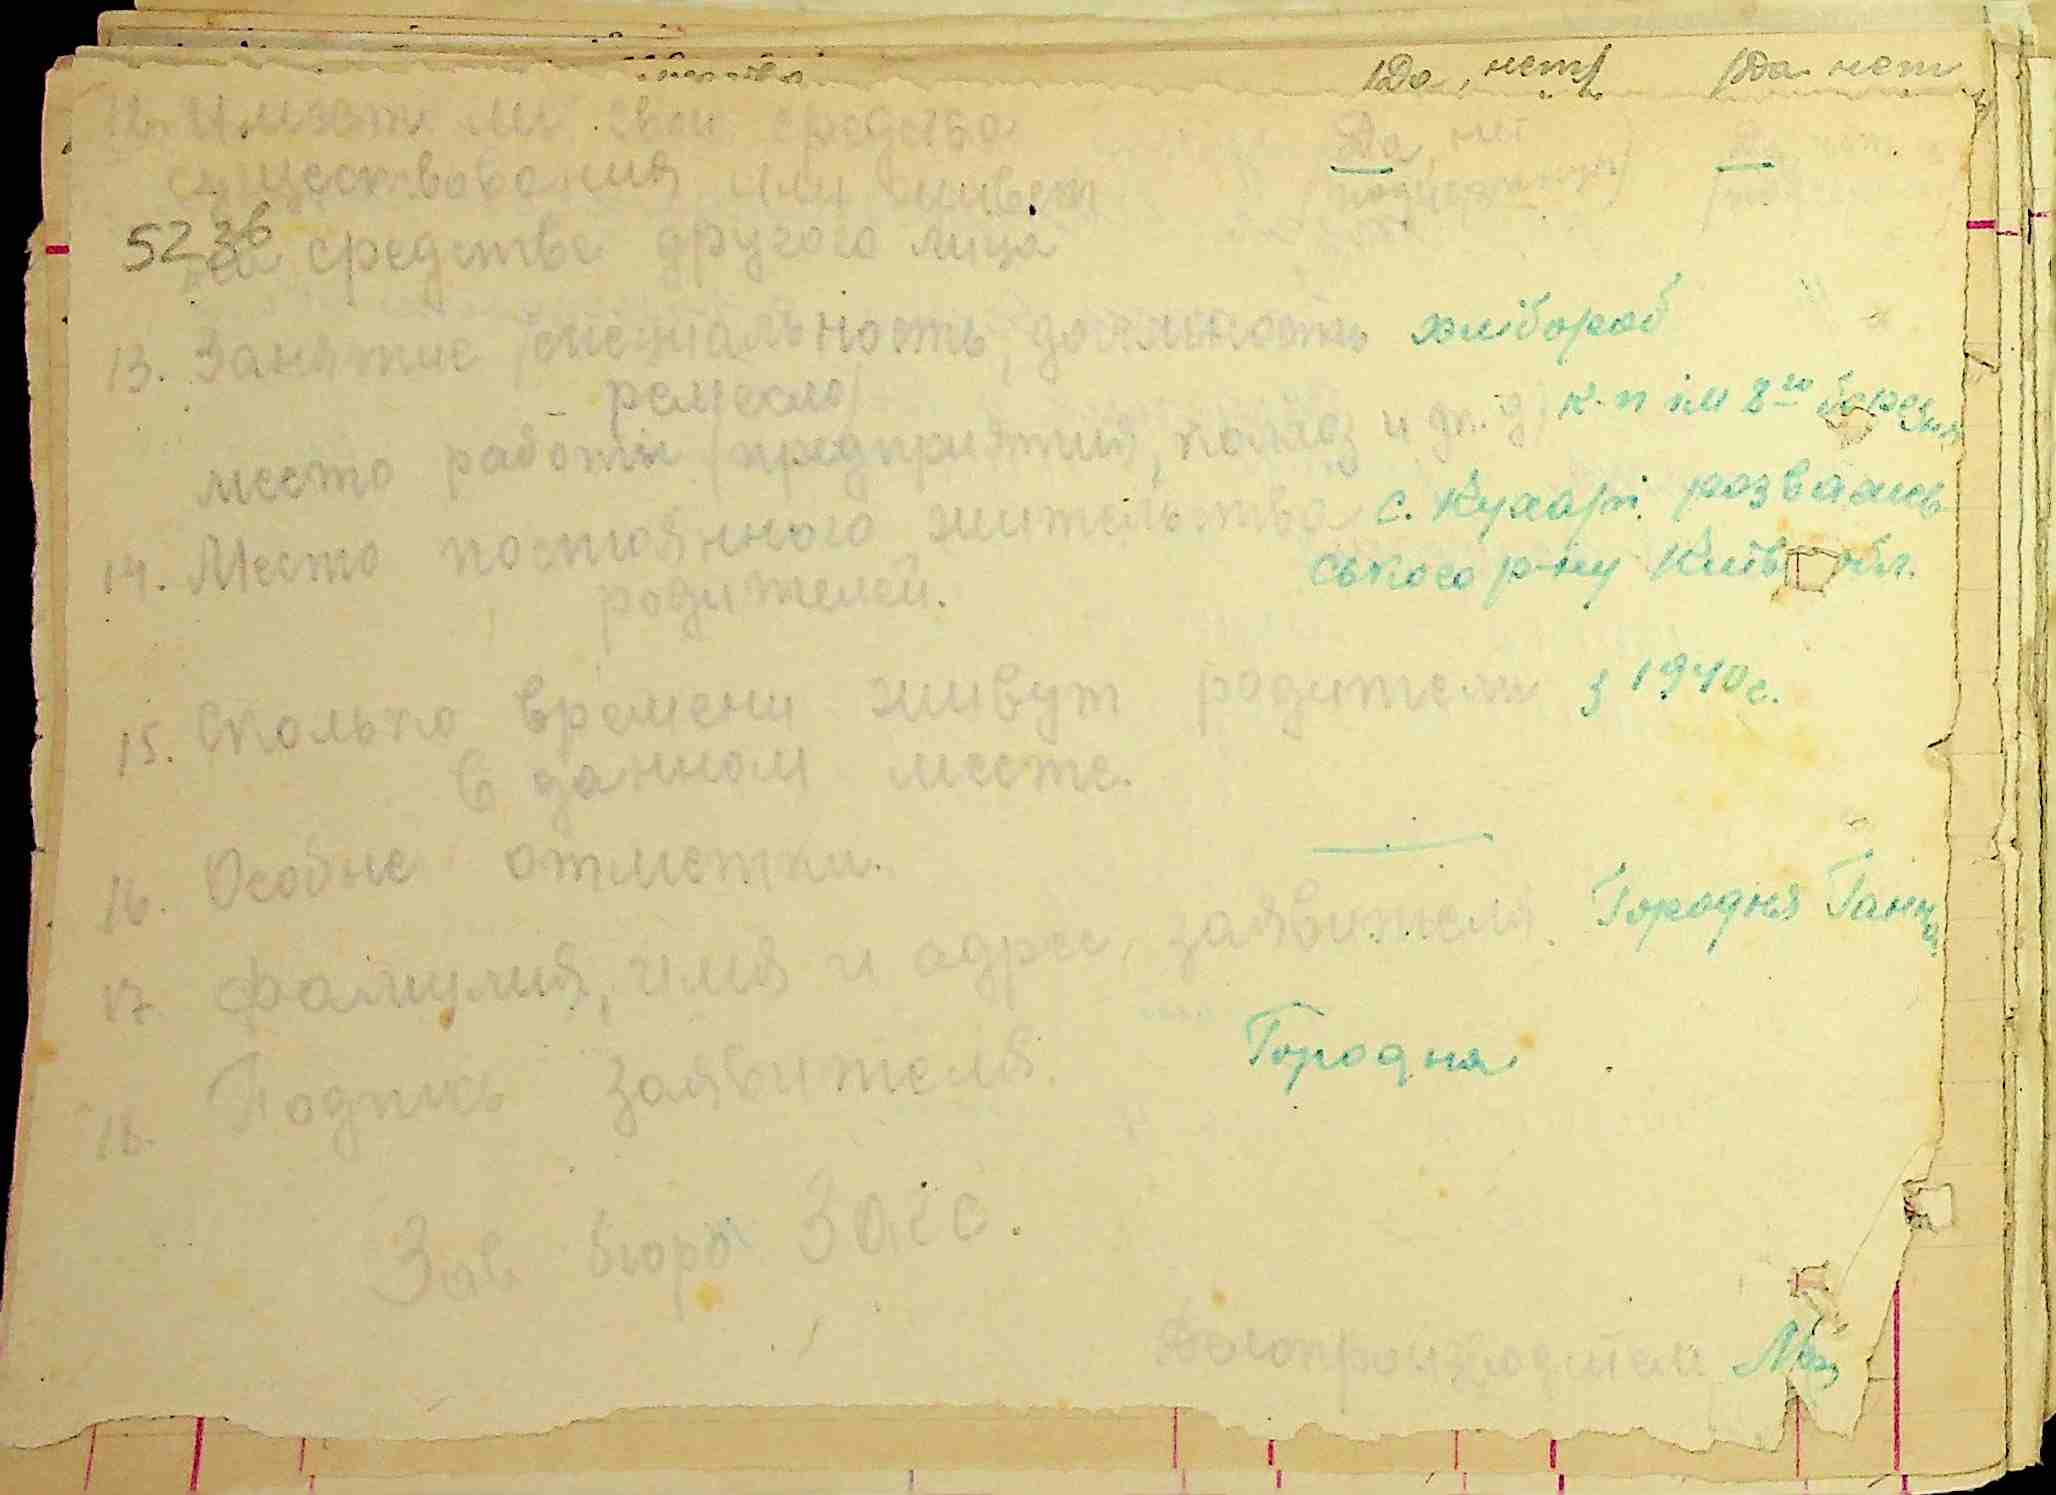 (Да, нет) (Да нет
12. Имеют ли свои средства Да, нет Да, нет
существования или живет (подчеркнуть)
52 зв
на средства другого лица
13. Занятие (специальность, должность хлібороб
ремесло)
место работы (предприятия, колхоз и т.д) к-п ім 8го березня
14. Место постоянного жительства с. Кухарі розважів
родителей. ського р-ну Київ обл.
15. Сколько времени живут родители з 1940 г.
в данном месте.
16. Особые отметки. —
17. Фамилия, имя и адрес, заявителя. Городня Ганна
18. Подпись заявителя. Городня
Зав бюро Загс.
Делопроизводитель